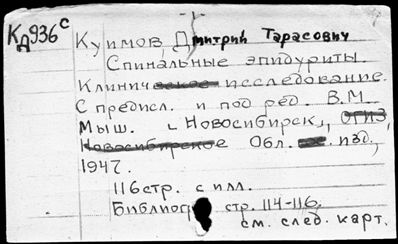 Кд936с
Куимов, Дмитрий Тарасович
Спинальные эпидуриты.
Клинич исследование.
С предисл. и под ред. В.М.
Мыш. Новосибирск, ОГИЗ,
Новосибирское Обл. изд,
1947.
116стр. с илл.
Библиогр стр. 114-116.
см. след. карт.